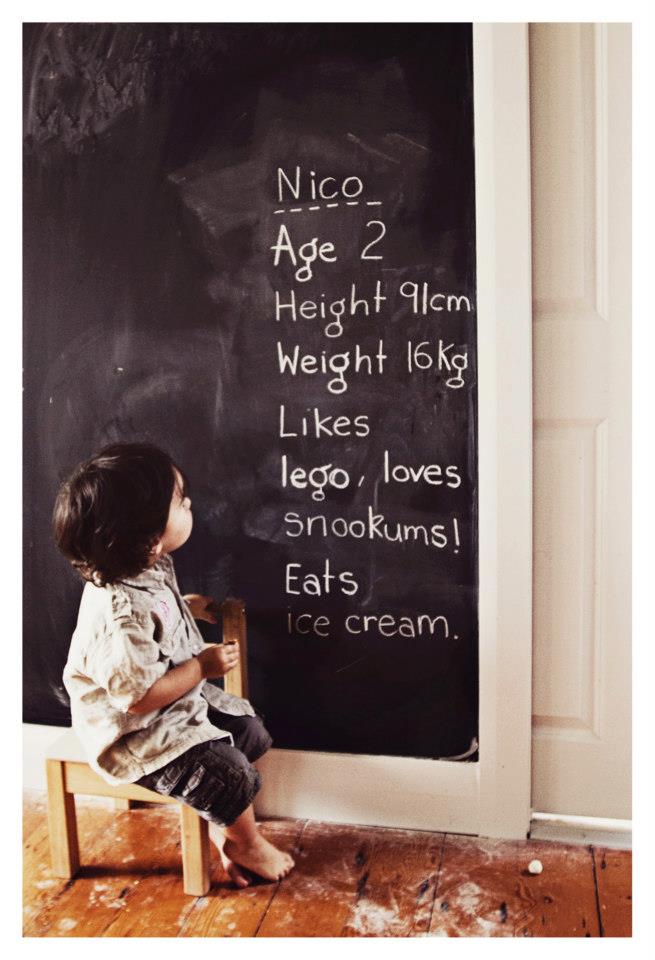 Nico
Age 2
Height 91cm
Weight 16kg
Likes
lego, loves
snookums!
Eats
ice cream.